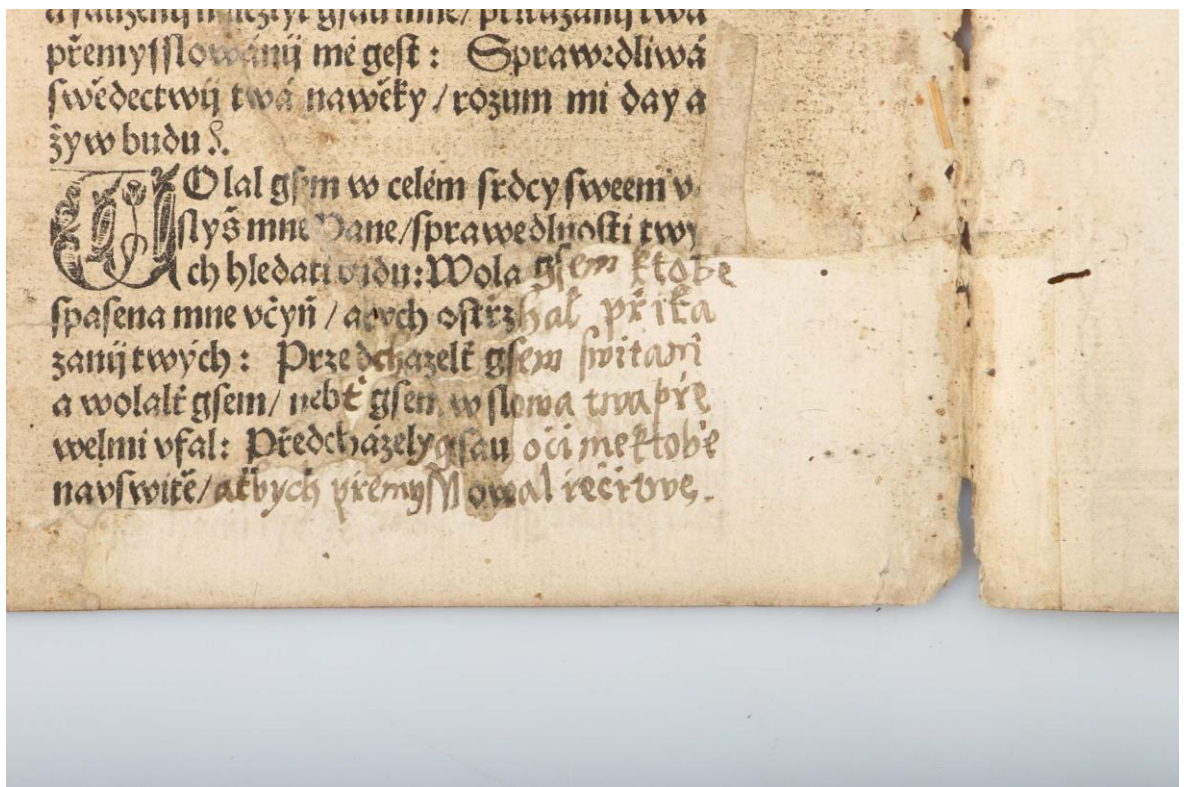 a saužený nalezly gsau mne / přikázaný twá
přemyſſlowáný mé geſt : Sprawedliwá
ſwědectwij twá nawěky / rozum mi day a
žyw budu
WOlal gſem w celém ſrdcy ſweem v
ſlyš mne Pane / ſprawedlnoſti twy
ch hledati budu : Wola gſem ktobě
ſpaſena mne včyň / abych oſtřzhal přika
zanij twých : Przedcházelť gſem ſwitanî
a wolalť gſem / nebť gſem w ſlowa twa přě
welmi vfal : Předcházely gſau oči mé ktobě
navſwitě / ažbych přemyſſlowal řeči twé .